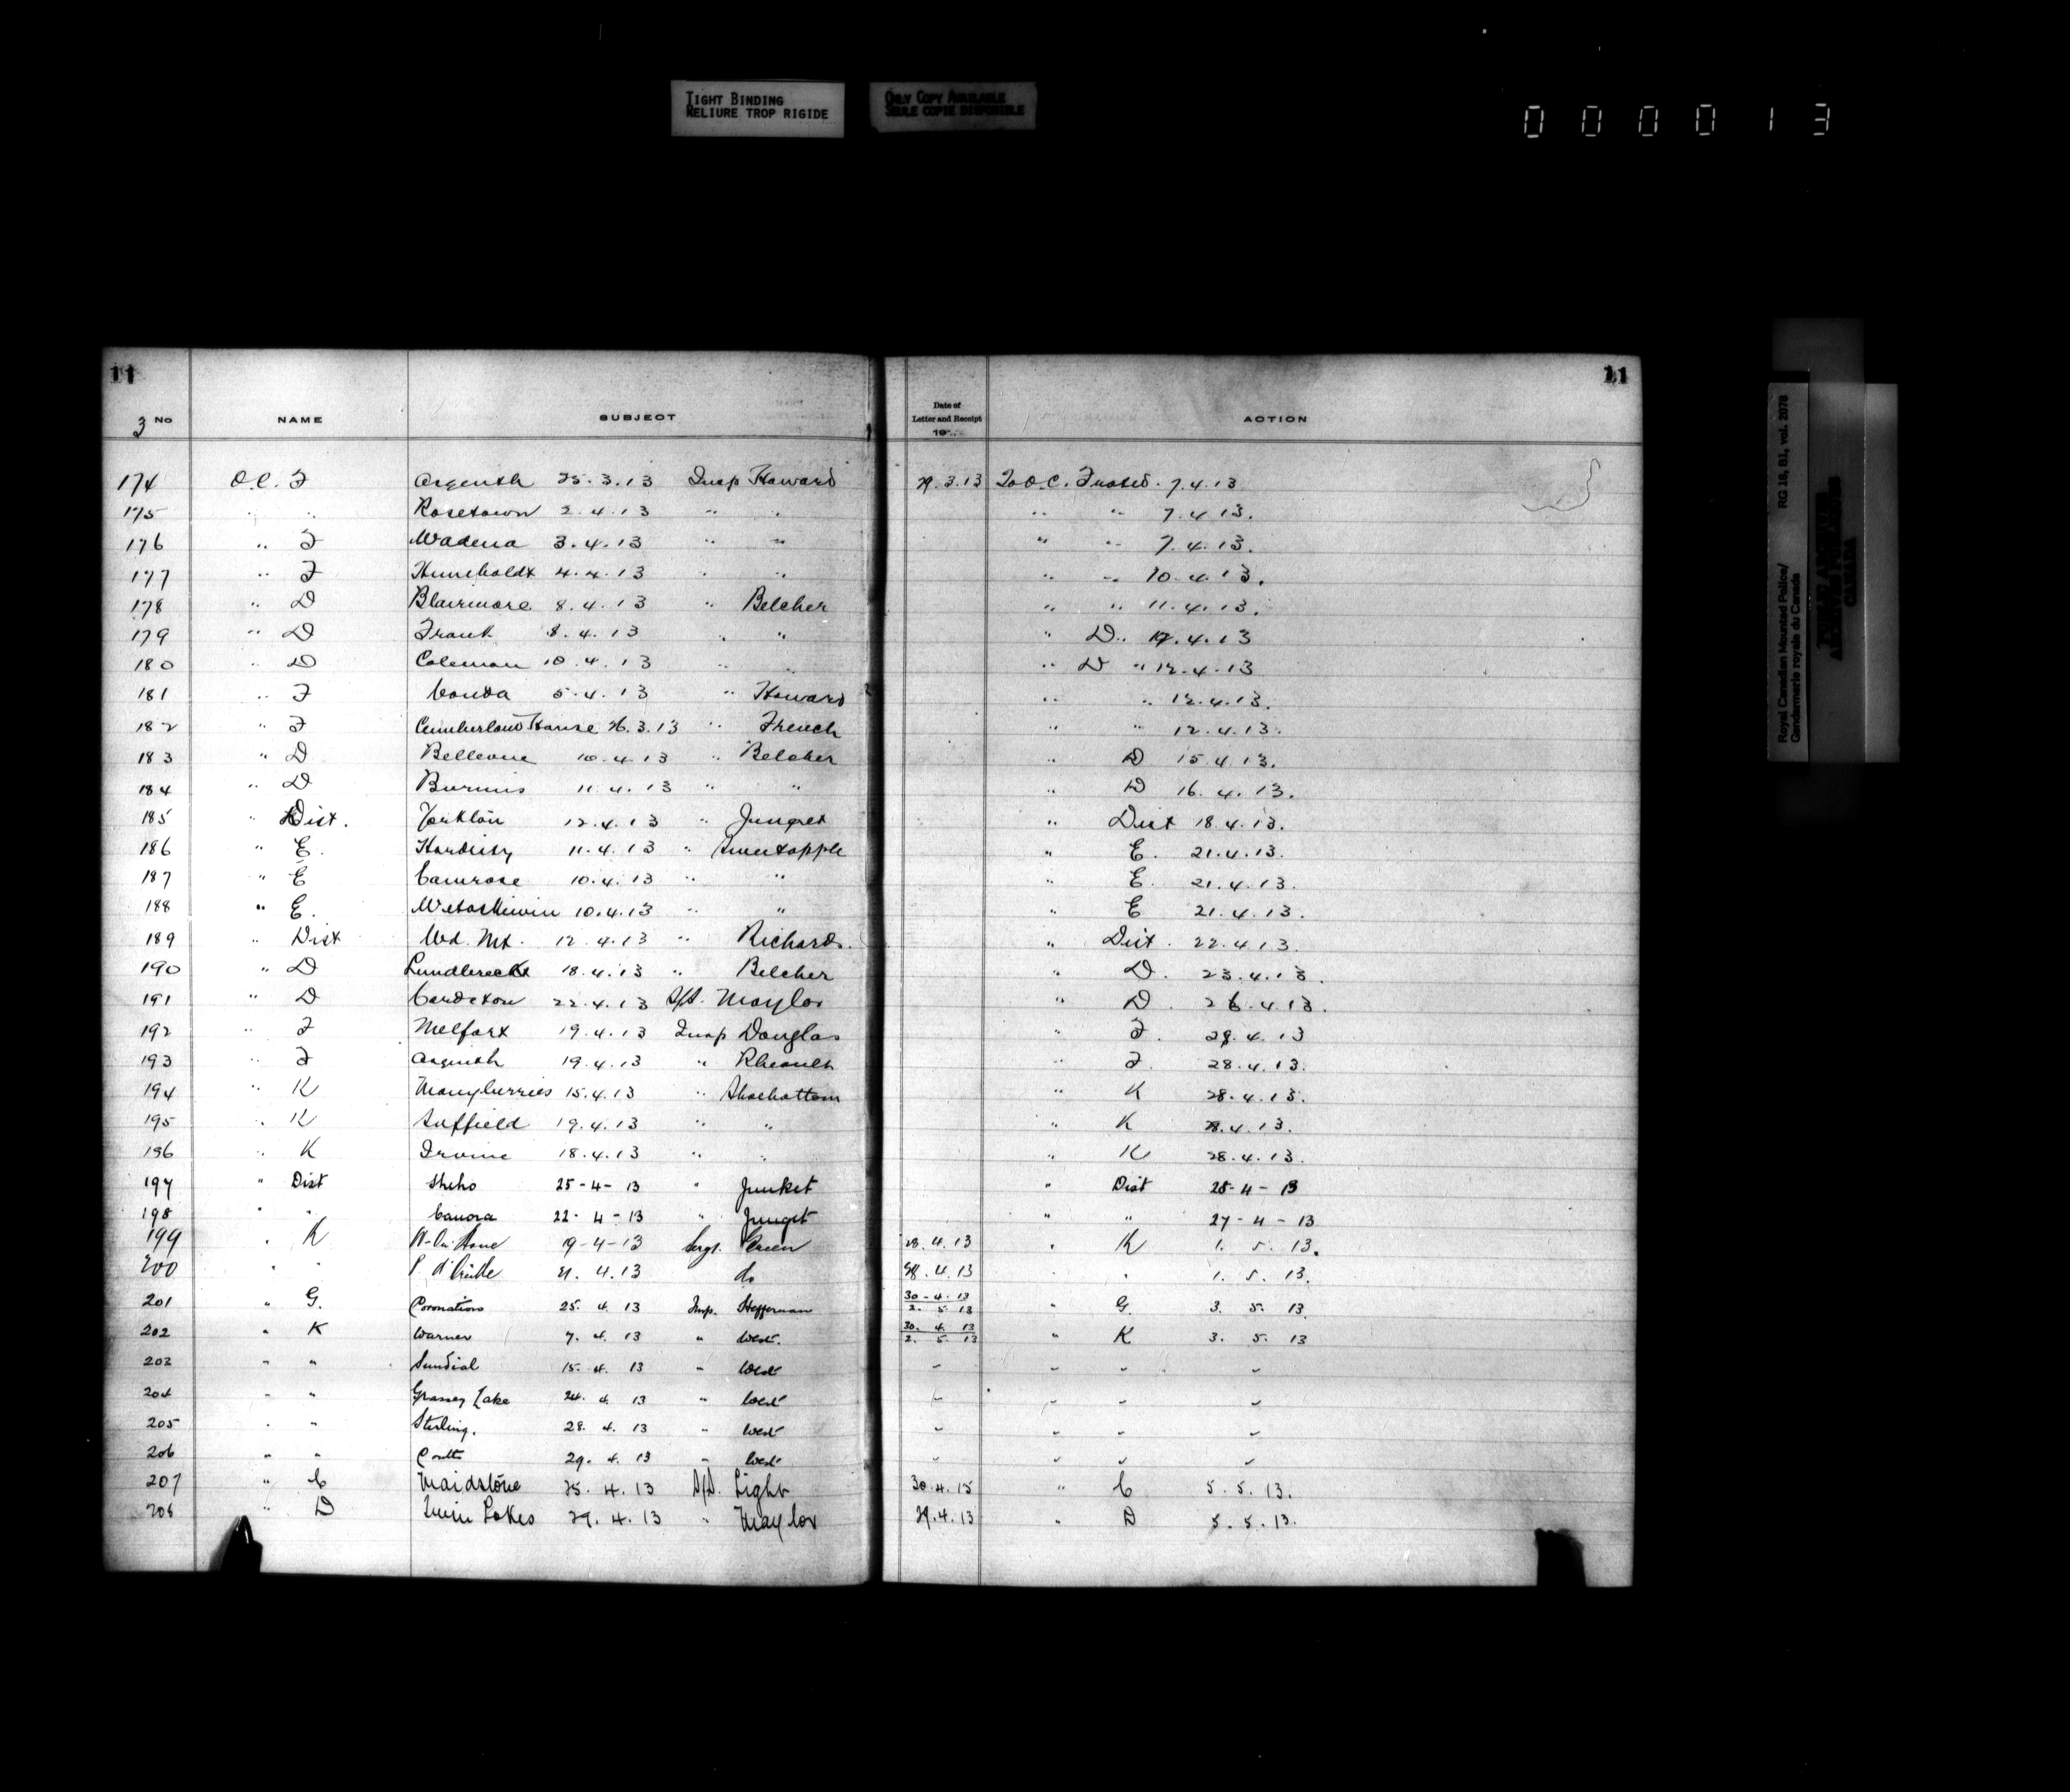 TIGHT BINDING
RELIURE TROP RIGIDE
ONLY COPY AVAILABLE
SEULE COPIE DISPONIBLE
000013
11 11
3 No NAME SUBJECT Date of Letter and Receipt 19 ACTION
174 O.C. F Asquith 25.3.13 Insp Howard 29.3.13 To O.C. F noted. 7.4.13
175 " " Rosetown 2.4.13 " " " " 7.4.13.
176 " F Wadena 3.4.13 " " " " 7.4.13.
177 " F Humboldt 4.4.13 " " " " 10.4.13.
178 " D Blairmore 8.4.13 " Belcher " " 11.4.13.
179 " D Frank 8.4.13 " " " D " 17.4.13
180 " D Coleman 10.4.13 " " " D " 12.4.13
181 " F Vonda 5.4.13 " Howard " " 12.4.13.
182 " F Cumberland House 26.3.13 " French " " 12.4.13.
183 " D Bellevue 10.4.13 " Belcher " D 15.4.13.
184 " D Burmis 11.4.13 " " " D 16.4.13.
185 " Dist. Yorkton 12.4.13 " Junget " Dist 18.4.13.
186 " E. Hardisty 11.4.13 " Sweetapple " E. 21.4.13.
187 " E Camrose 10.4.13 " " " E. 21.4.13.
188 " E. Wetaskiwin 10.4.13 " " " E 21.4.13.
189 " Dist Wd. Mt. 12.4.13 " Richards. " Dist. 22.4.13.
190 " D Lundbreck 18.4.13 " Belcher " D. 23.4.13.
191 " D Cardston 22.4.13 S/S. Maylor " D. 26.4.13.
192 " F Melfort 19.4.13 Insp Douglas " F. 29.4.13
193 " F Asquith 19.4.13 " Rheault " F. 28.4.13.
194 " K Manyberries 15.4.13 " Shoebottom " K 28.4.13.
195 " K Suffield 19.4.13 " " " K 28.4.13.
196 " K Irvine 18.4.13 " " " K 28.4.13.
197 " Dist Sheho 25-4-13 " Junket " Dist 28-4-13
198 " " Canora 22-4-13 " Junget " " 27-4-13
199 " K 19-4-13 Sergt. Green 28.4.13 " K 1. 5. 13.
200 " " 21. 4.13 do 28.4.13 " " 1. 5. 13.
201 " G. Coronation 25. 4. 13 Insp. Heffernan 30-4-13 2. 5. 13 " G. 3. 5. 13
202 " K Warner 7. 4. 13 " West. 30. 4. 13 2. 5. 13 " K 3. 5. 13
203 " " Sundial 15. 4. 13 " West " " " "
204 " " Grassy Lake 24. 4. 13 " West " " " "
205 " " Sterling. 28. 4. 13 " West " " " "
206 " " Coutts 29. 4. 13 " West " " " "
207 " C Maidstone 25. 4. 13 S/S. Light 30.4.13 " C 5. 5. 13.
208 " D Twin Lakes 29. 4. 13 " Maylor 29.4.13 " D 5. 5. 13.
Royal Canadian Mounted Police/
Gendarmerie royale du Canada
RG 18, B1, vol. 2078
PUBLIC ARCHIVES
ARCHIVES PUBLIQUES
CANADA